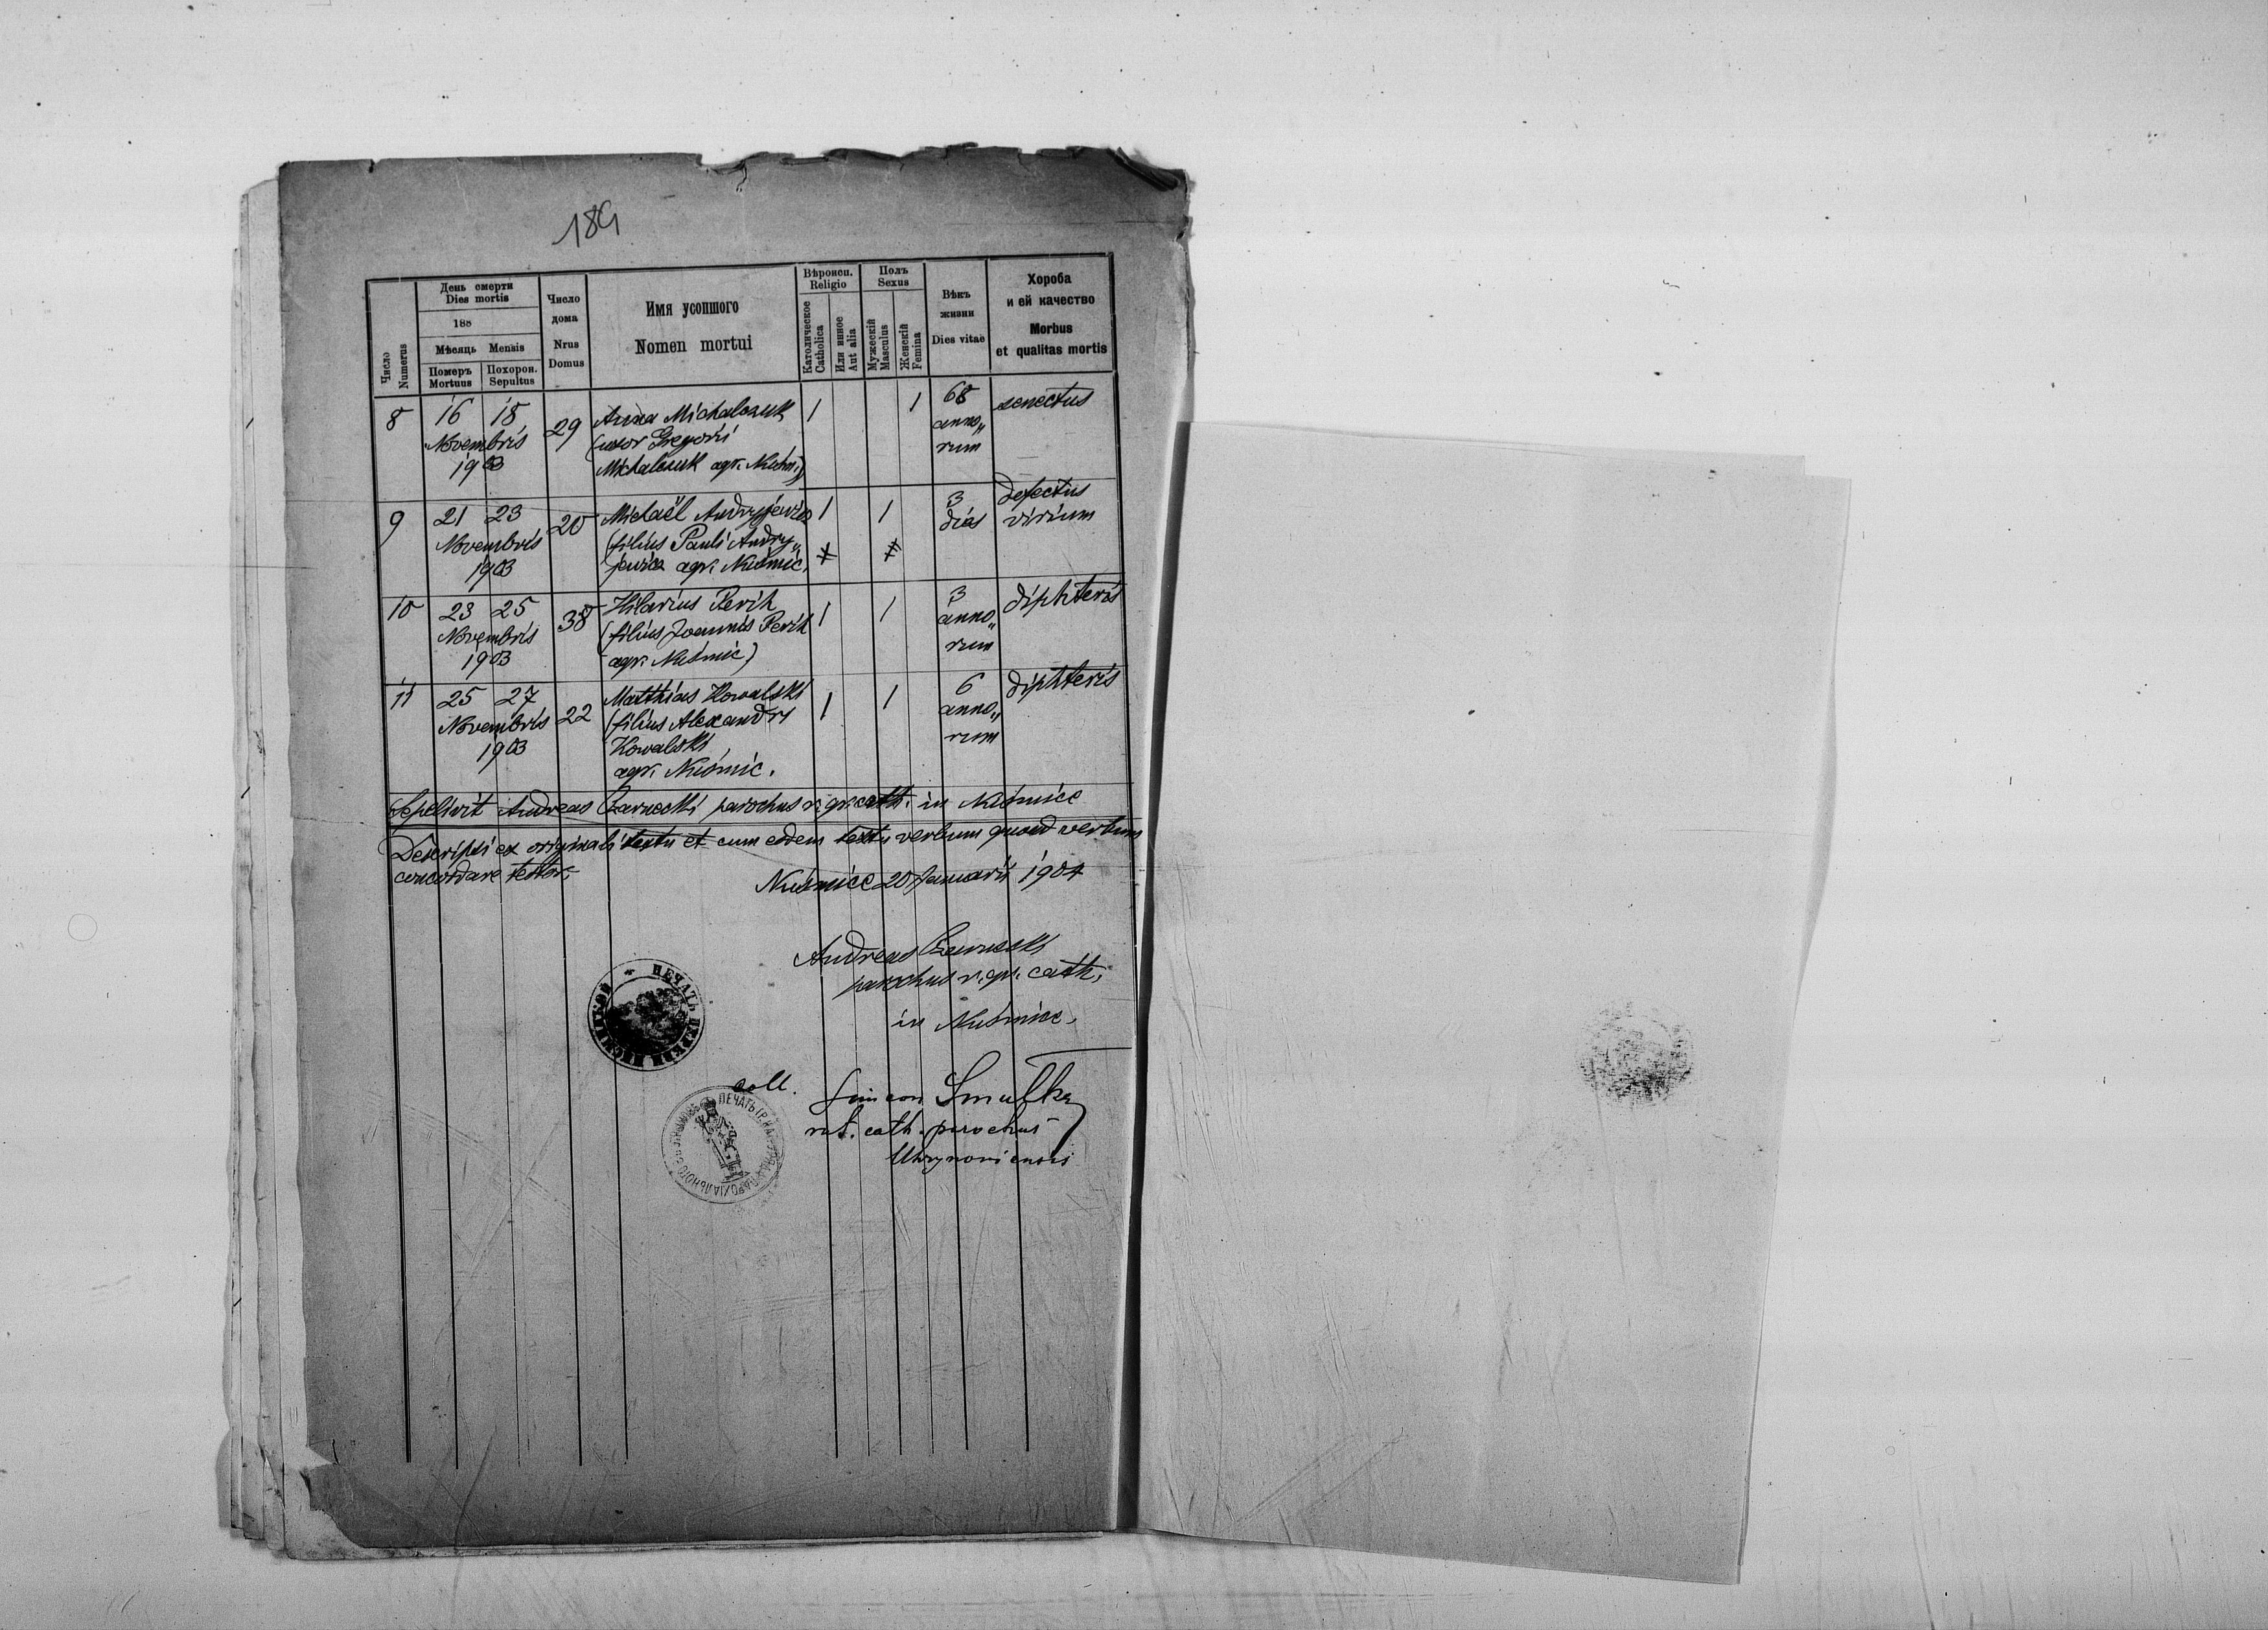 189
Число Numerus
День смерти
Dies mortis
188
Мѣсяць Mensis
Померъ Mortuus
Похорон. Sepultus
Число дома
Nrus Domus
Имя усопшого
Nomen mortui
Вѣроисп.
Religio
Католическое Catholica
Или инное Aut alia
Полъ
Sexus
Мужескій Masculus
Женскій Femina
Вѣкъ жизни
Dies vitae
Хороба
и ей качество
Morbus
et qualitas mortis
8 16 18 29 Anna Michalczuk 1 1 68 senectus
Novembris (uxor Gregorii anno„
1903 Michalczuk agr. rum
9 21 23 20 Michaël Andryjewicz 1 1 3 defectus
Novembris (filius Pauli Andry„ dies virium
1903 jewicz agr. Nuśmic.
10 23 25 38 Hilarius Perih 1 1 3 diphteris
Novembris (filius Joannis Perih anno„
1903 agr. Nuśmic) rum
11 25 27 22 Matthias Kowalski 1 1 6 diphteris
Novembris (filius Alexandri anno„
1903 Kowalski rum
agr. Nuśmic.
Sepelivit Andreas Czarnecki parochus r. gr. cath. in Nuśmice
Descripsi ex originali textu et cum eodem textu verbum quoad verbum
concordare testor.
Nuśmice 20 Januarii 1904
Andreas Czarnecki
parochus r. gr. cath.
in Nuśmice.
ПЕЧАТЬ ЦЕРКВИ
coll. Simeon Smulka
rit. cath. parochus
Uhrynoviensis
ПЕЧАТЬ